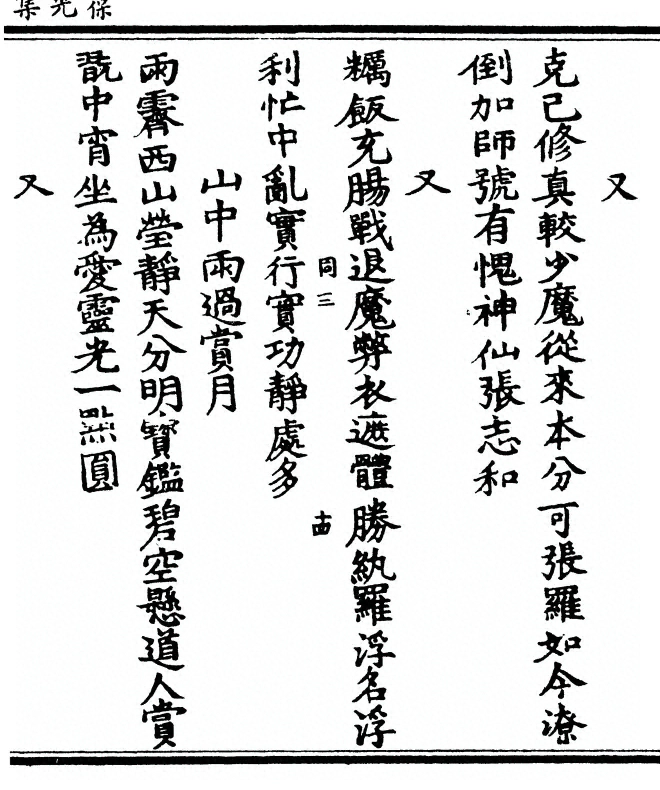 葆光集
又
克己修真較少魔從來本分可張羅如今潦
倒加師號有愧神仙張志和
又
糲飯充腸戰退魔弊衣遮體勝紈羅浮名浮
同三 十四
利忙中亂實行實功靜處多
山中雨過賞月
雨霽西山瑩靜天分明寶鑑碧空懸道人賞
翫中宵坐為愛靈光一點圓
又